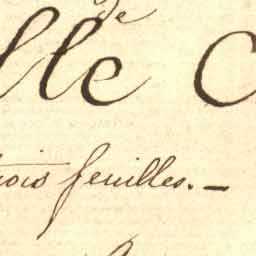 de
lle C
trois feuilles. —